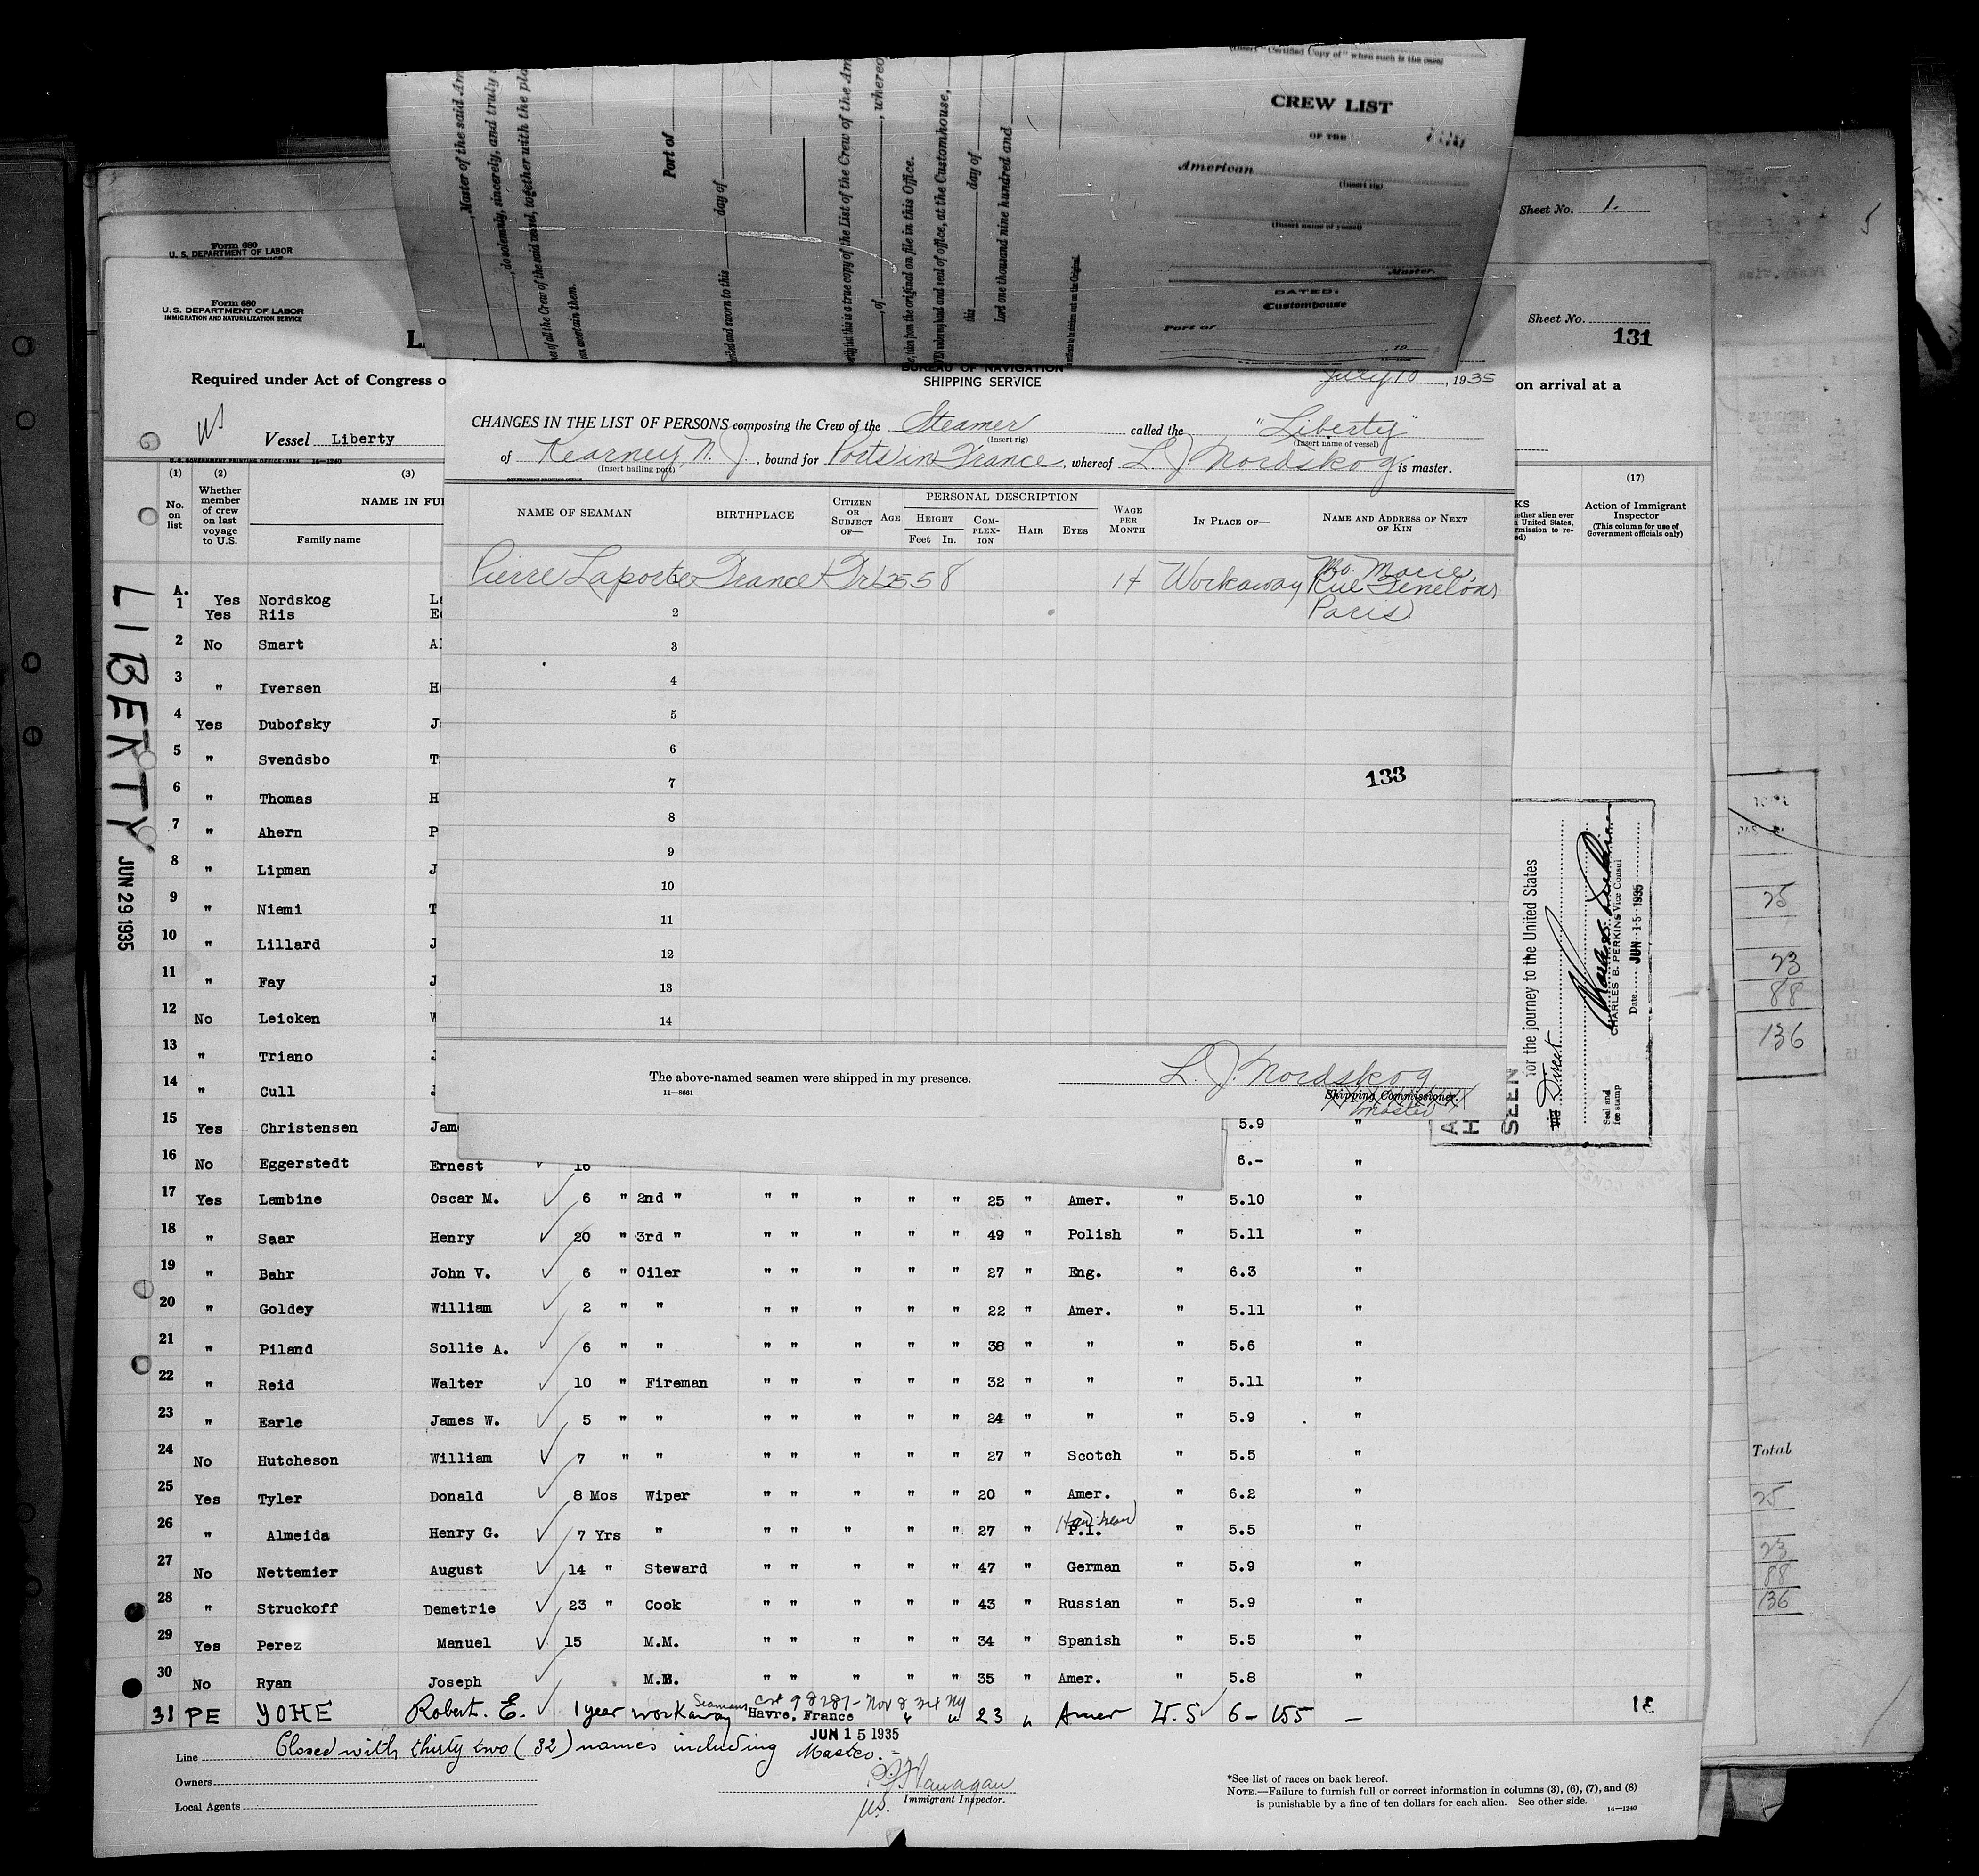 (Insert "Certified Copy of" when such is the case)
CREW LIST
OF THE
American
(Insert rig)
(Insert name of vessel)
Master.
DATED:
Customhouse
Port of
, 19
Master of the said Am
, do solemnly, sincerely, and truly
of all the Crew of the said vessel, together with the pla
can ascertain them.
Port of
day of
and sworn to this
that this is a true copy of the List of the Crew of the Am
, of , whereo
, taken from the original on file in this Office.
hand and seal of office, at the Customhouse,
this day of
Lord one thousand nine hundred and
Sheet No. 1.
Form 680
U. S. DEPARTMENT OF LABOR
Form 680
U. S. DEPARTMENT OF LABOR
IMMIGRATION AND NATURALIZATION SERVICE
Sheet No.
131
Required under Act of Congress o
on arrival at a
Vessel Liberty
U. S. GOVERNMENT PRINTING OFFICE: 1934 14—1240
BUREAU OF NAVIGATION
SHIPPING SERVICE
July 10, 1935
CHANGES IN THE LIST OF PERSONS composing the Crew of the Steamer called the "Liberty"
(Insert rig) (Insert name of vessel)
of Kearney, N. J., bound for Ports in France, whereof L. J. Nordskog is master.
(Insert hailing port)
GOVERNMENT PRINTING OFFICE
NAME OF SEAMAN BIRTHPLACE CITIZEN OR SUBJECT OF— AGE PERSONAL DESCRIPTION HEIGHT Feet In. COMPLEXION HAIR EYES WAGE PER MONTH IN PLACE OF— NAME AND ADDRESS OF NEXT OF KIN
Pierre Laporte France Fr 25 5 8 1¢ Workaway Mo. Marie,
Rue Fenelon,
Paris
2
3
4
5
6
7
133
8
9
10
11
12
13
14
The above-named seamen were shipped in my presence. L. J. Nordskog
11—8661 Shipping Commissioner.
Master
(1) (2) (3) (17)
No. on list
Whether member of crew on last voyage to U.S.
NAME IN FUL
Family name
Action of Immigrant Inspector
(This column for use of Government officials only)
LIBERTY
JUN 29 1935
A.
1 Yes Nordskog
Yes Riis
2 No Smart
3 " Iversen
4 Yes Dubofsky
5 " Svendsbo
6 " Thomas
7 " Ahern
8 " Lipman
9 " Niemi
10 " Lillard
11 " Fay
12 No Leicken
13 " Triano
14 " Cull
15 Yes Christensen Jam 5.9 "
16 No Eggerstedt Ernest 16 6.- "
17 Yes Lambine Oscar M. 6 " 2nd " " " " " " 25 " Amer. " 5.10 "
18 " Saar Henry 20 " 3rd " " " " " " 49 " Polish " 5.11 "
19 " Bahr John V. 6 " Oiler " " " " " 27 " Eng. " 6.3 "
20 " Goldey William 2 " " " " " " " 22 " Amer. " 5.11 "
21 " Piland Sollie A. 6 " " " " " " " 38 " " " 5.6 "
22 " Reid Walter 10 " Fireman " " " " " 32 " " " 5.11 "
23 " Earle James W. 5 " " " " " " " 24 " " " 5.9 "
24 No Hutcheson William 7 " " " " " " " 27 " Scotch " 5.5 "
25 Yes Tyler Donald 8 Mos Wiper " " " " " 20 " Amer. " 6.2 "
26 " Almeida Henry G. 7 Yrs " " " " " " 27 " P.I. Hawiian " 5.5 "
27 No Nettemier August 14 " Steward " " " " " 47 " German " 5.9 "
28 " Struckoff Demetrie 23 " Cook " " " " " 43 " Russian " 5.9 "
29 Yes Perez Manuel 15 M.M. " " " " " 34 " Spanish " 5.5 "
30 No Ryan Joseph M.B. " " " " " 35 " Amer. " 5.8 "
31 PE YOHE Robert. E. 1 year workaway Seamans Cert 98287- Nov 8 34 NY Havre, France " " 23 " Amer U.S 6- 155 —
JUN 15 1935
Line Closed with thirty two (32) names including Master.
Owners
Local Agents
Immigrant Inspector.
*See list of races on back hereof.
NOTE.—Failure to furnish full or correct information in columns (3), (6), (7), and (8)
is punishable by a fine of ten dollars for each alien. See other side.
14—1240
SEEN
for the journey to the United States
Direct
CHARLES B. PERKINS Vice Consul
Date JUN 15 1935
Seal and fee stamp
25
23
88
136
Total
25
23
88
136